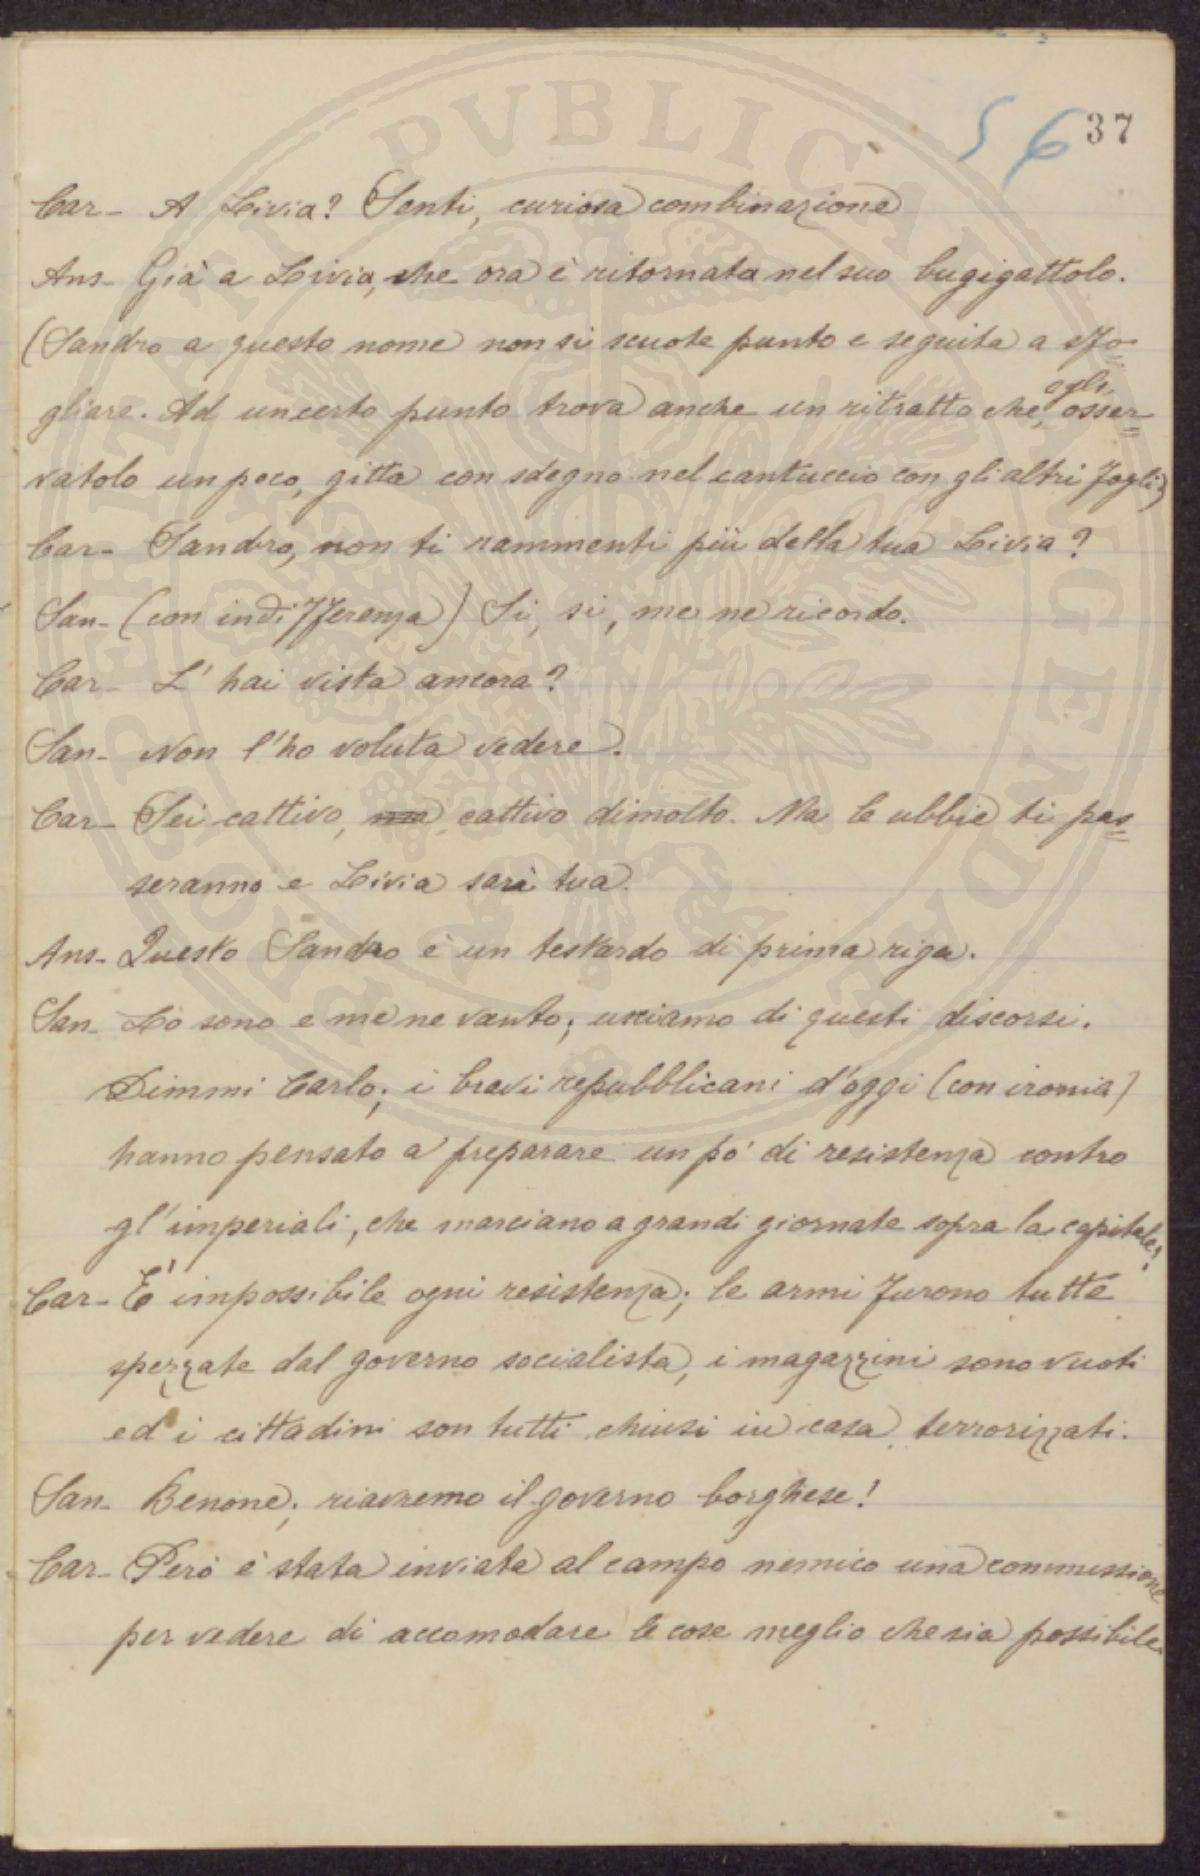 56 37
Car- A Livia? Senti, curiosa combinazione
Ans- Già a Livia, che ora è ritornata nel suo bugigattolo.
(Sandro a questo nome non si scuote punto e seguita a sfo-
gliare. Ad un certo punto trova anche un ritratto che, egli, osser=
vatolo un poco, gitta con sdegno nel cantuccio con gli altri fogli)
Car- Sandro, non ti rammenti più della tua Livia?
San- (con indifferenza) Si, si, me ne ricordo.
Car- L'hai vista ancora?
San- Non l'ho voluta vedere.
Car- Sei cattivo, ma cattivo dimolto. Ma le ubbie ti pas=
seranno e Livia sarà tua.
Ans- Questo Sandro è un testardo di prima riga.
San- Lo sono e me ne vanto; usciamo di questi discorsi.
Dimmi Carlo; i bravi repubblicani d'oggi (con ironia)
hanno pensato a preparare un pò di resistenza contro
gl'imperiali, che marciano a grandi giornate sopra la capitale?
Car- È impossibile ogni resistenza; le armi furono tutte
spezzate dal governo socialista, i magazzini sono vuoti
ed i cittadini son tutti chiusi in casa terrorizzati.
San- Benone; riavremo il governo borghese!
Car- Però è stata inviata al campo nemico una commissione
per vedere di accomodare le cose meglio che sia possibile
PVBLICAE